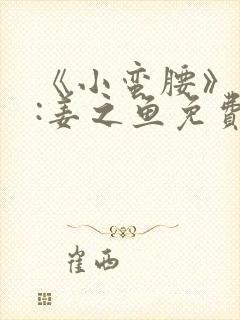 《小蛮腰》
:姜之鱼免費
崔西